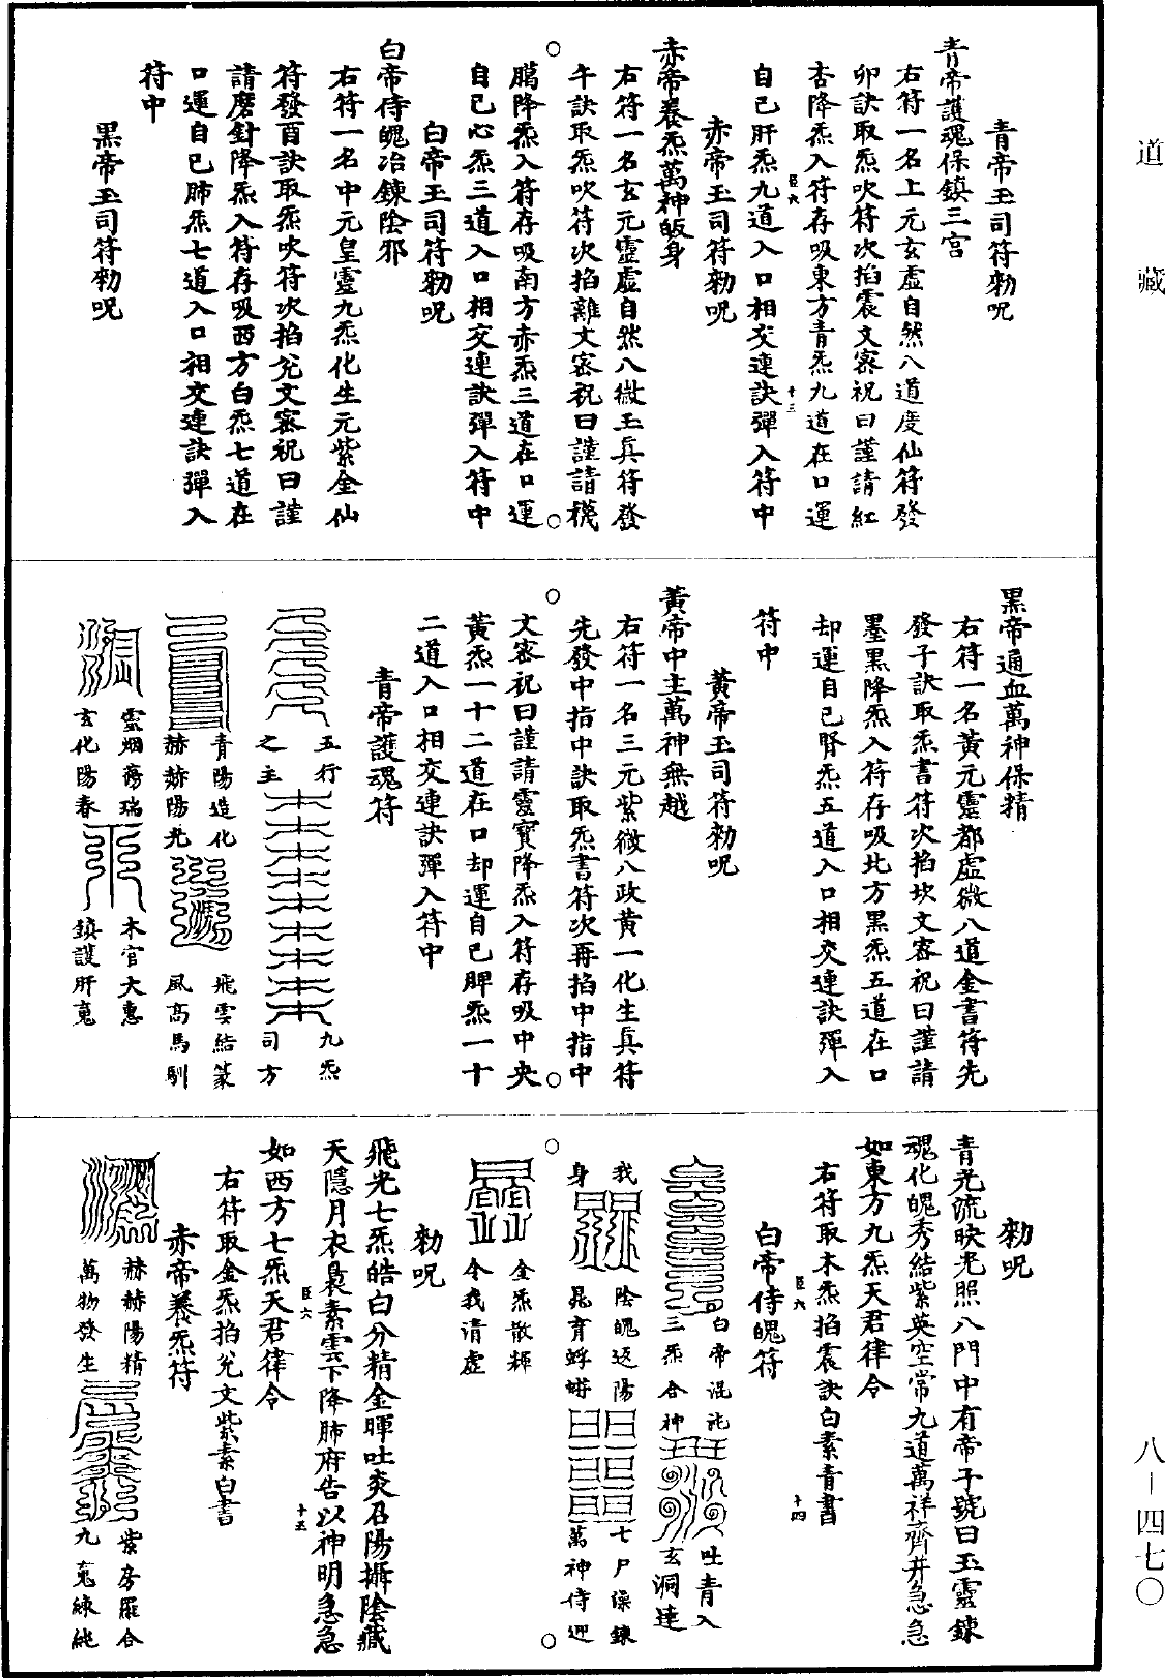 道藏
青帝玉司符勑呪
青帝護魂保鎮三宮
右符一名上元玄虛自然八道度仙符發
卯訣取炁吹符次掐震文密祝曰謹請紅
杏降炁入符存吸東方青炁九道在口運
自己肝炁九道入口相交連訣彈入符中
赤帝玉司符勑呪
赤帝養炁萬神皈身
右符一名玄元靈虛自然八微玉真符發
午訣取炁吹符次掐離文密祝曰謹請
降炁入符存吸南方赤炁三道在口運
自己心炁三道入口相交連訣彈入符中
白帝玉司符勑呪
白帝侍魄冶鍊陰邪
右符一名中元皇靈九炁化生元紫金仙
符發酉訣取炁吹符次掐兌文密祝曰謹
請磨針降炁入符存吸西方白炁七道在
口運自己肺炁七道入口相交連訣彈入
符中
黑帝玉司符勑呪
黑帝通血萬神保精
右符一名黃元靈都虛微八道金書符先
發子訣取炁書符次掐坎文密祝曰謹請
墨黑降炁入符存吸北方黑炁五道在口
却運自己腎炁五道入口相交連訣彈入
符中
黃帝玉司符勑呪
黃帝中主萬神無越
右符一名三元紫微八政黃一化生真符
先發中指中訣取炁書符次再掐中指中
文密祝曰謹請靈寶降炁入符存吸中央
黃炁一十二道在口却運自己脾炁一十
二道入口相交連訣彈入符中
青帝護魂符
五行
之主
九炁
司方
青陽造化
赫赫陽光
飛雲結篆
風高馬馴
靈烟蕩瑞
玄化陽春
木官大惠
鎮護肝䰟
勑呪
青光流映光照八門中有帝子號曰玉靈鍊
魂化魄秀結紫英空常九道萬祥齊并急急
如東方九炁天君律令
右符取木炁掐震訣白素青書
白帝侍魄符
白帝混沌
三炁合神
吐青入
玄洞連
我
身
陰魄返陽
晁育蜉蝣
七尸澡鍊
萬神侍迎
金炁散輝
令我清虛
勑呪
飛光七炁皓白分精金暉吐炎召陽攝陰藏
天隱月衣裊素雲下降肺府告以神明急急
如西方七炁天君律令
右符取金炁掐兌文紫素白書
赤帝養炁符
赫赫陽精
萬物發生
紫房羅合
九䰟練純
八－四七〇